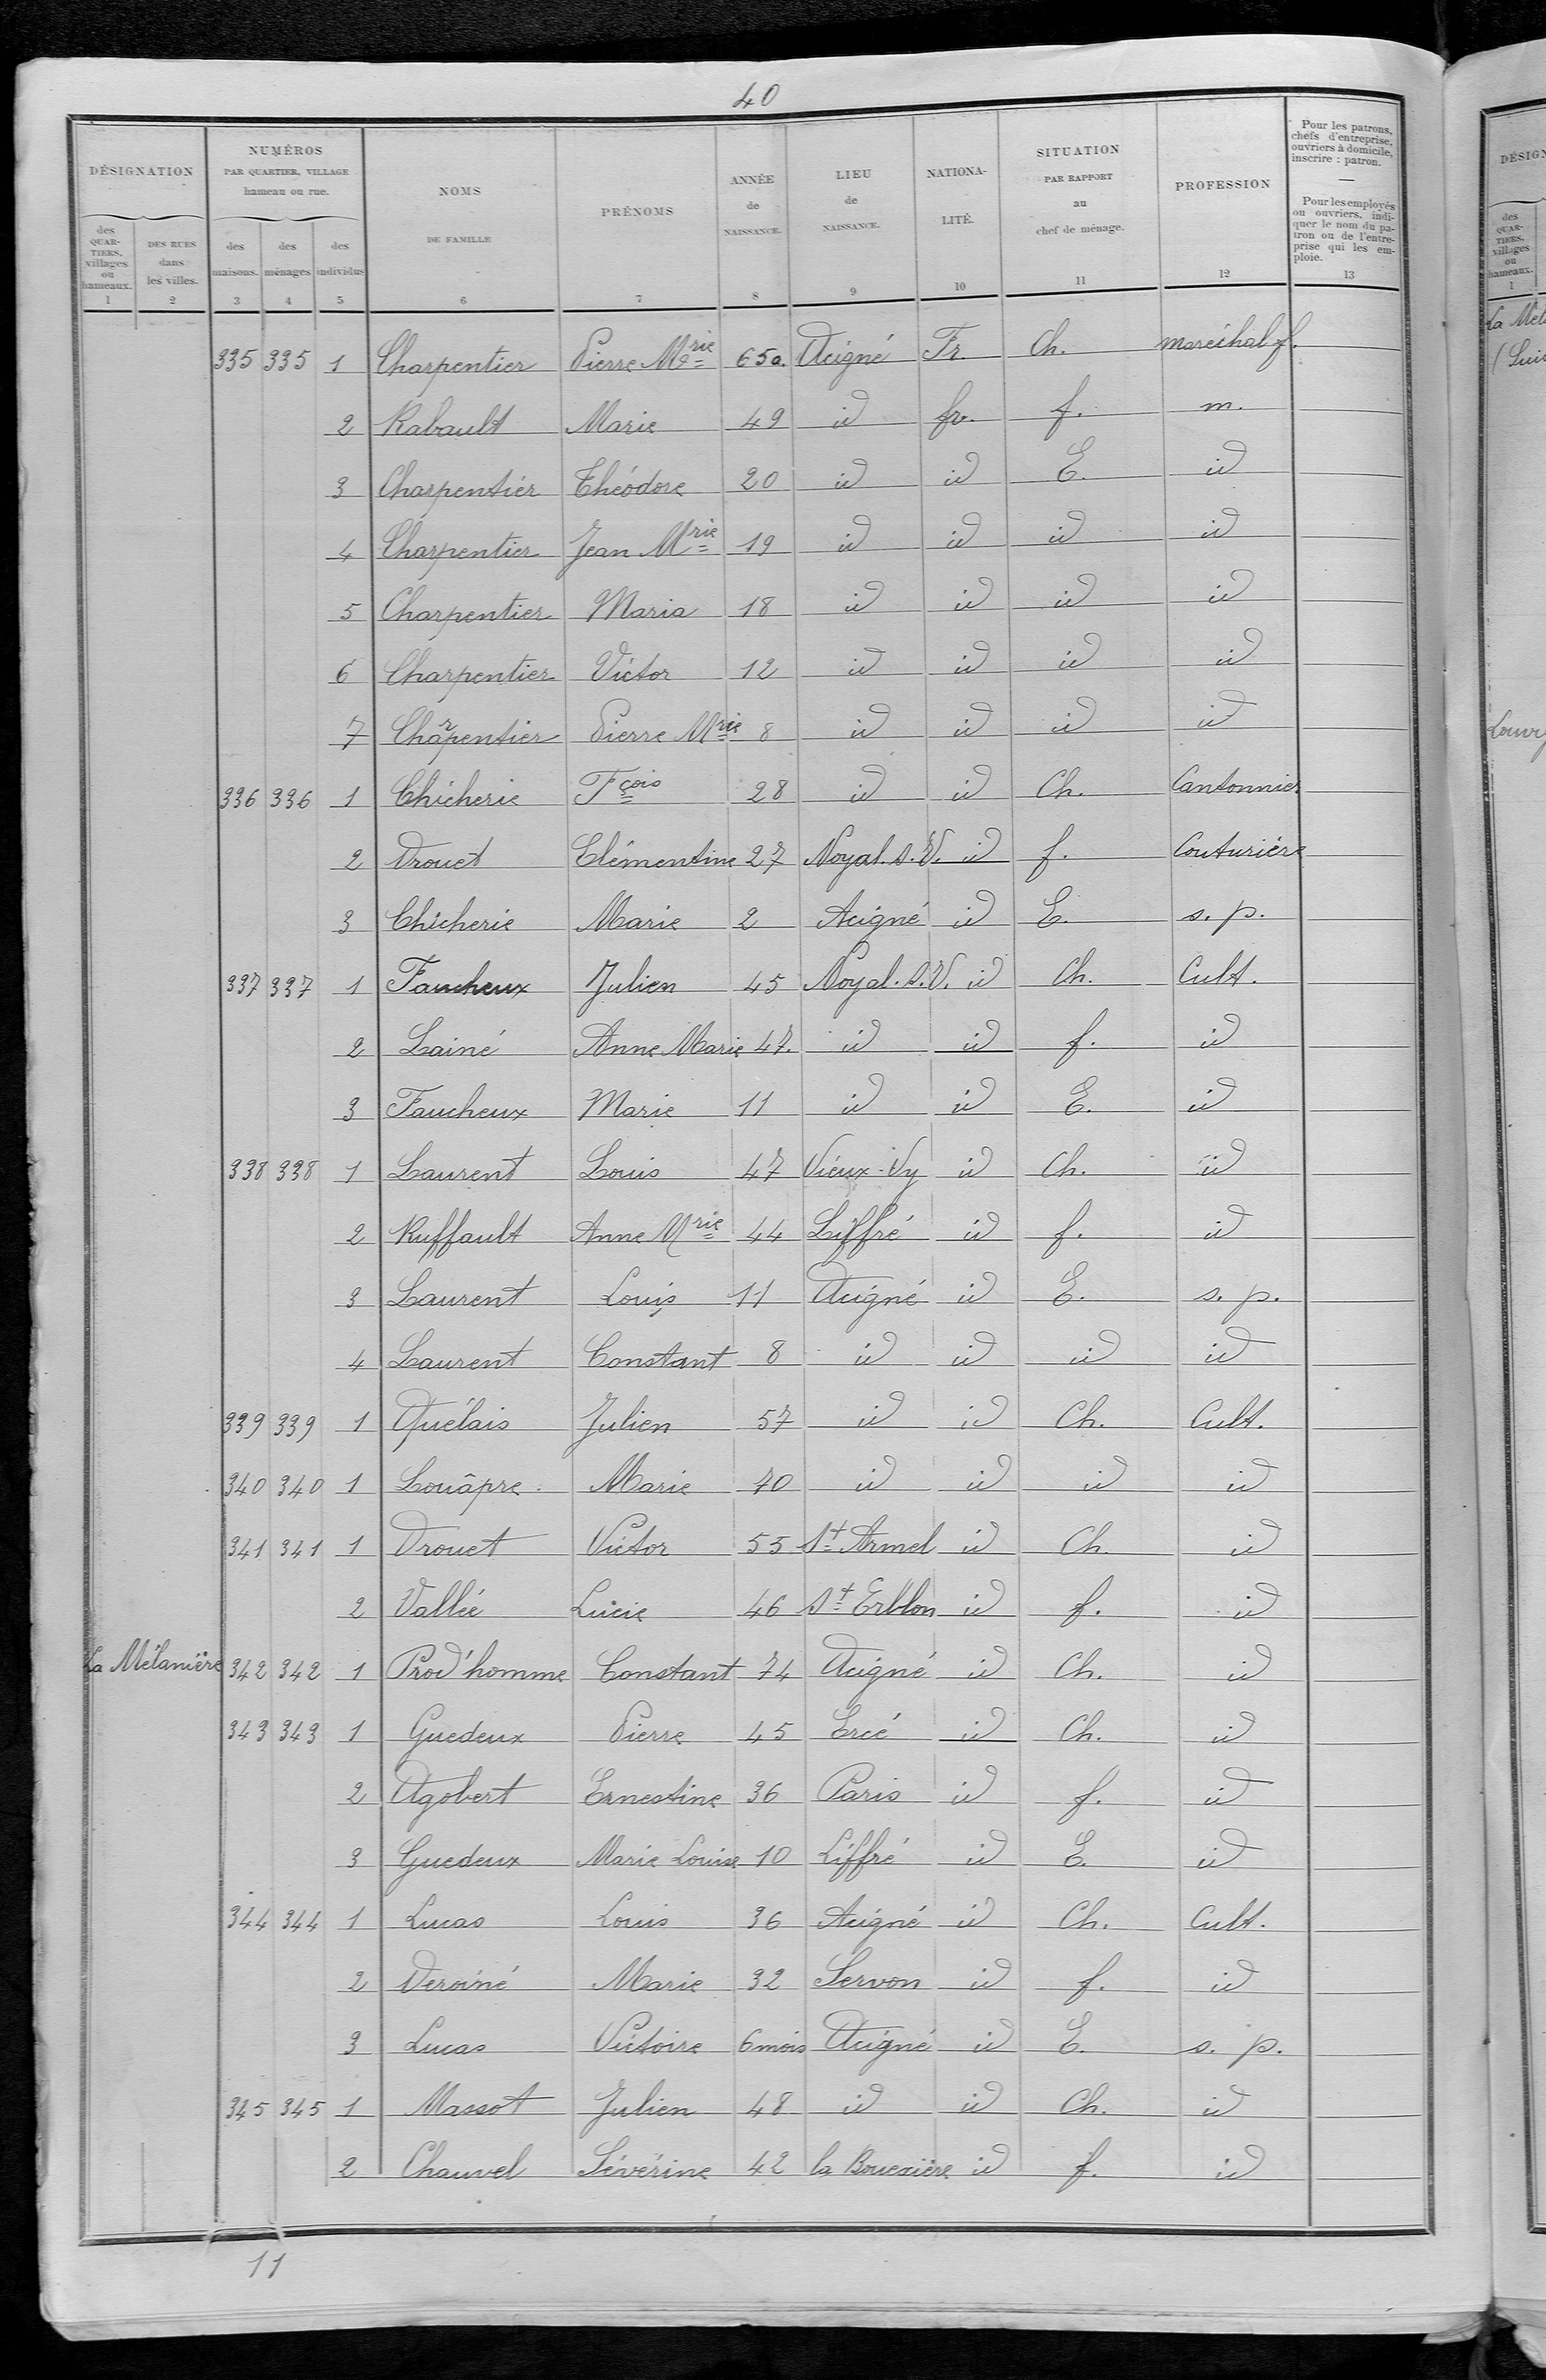 40
DÉSIGNATION NUMÉROS PAR QUARTIER, VILLAGE hameau ou rue. NOMS DE FAMILLE PRÉNOMS ANNÉE de NAISSANCE. LIEU de NAISSANCE. NATIONA-LITÉ. SITUATION PAR RAPPORT au chef de ménage. PROFESSION Pour les patrons, chefs d'entreprise, ouvriers à domicile, inscrire : patron. — Pour les employés ou ouvriers, indiquer le nom du patron ou de l'entreprise qui les emploie.
des QUARTIERS, villages ou hameaux. DES RUES dans les villes. des maisons. des ménages des individus
1 2 3 4 5 6 7 8 9 10 11 12 13
335 335 1 Charpentier Pierre Mrie 65 a. Acigné Fr. Ch. maréchal f.
2 Rabault Marie 49 id fr. f. m.
3 Charpentier Théodore 20 id id E. id
4 Charpentier Jean Mrie 19 id id id id
5 Charpentier Maria 18 id id id id
6 Charpentier Victor 12 id id id id
7 Charpentier Pierre Mrie 8 id id id id
336 336 1 Chicherie Fçois 28 id id Ch. Cantonnier
2 Drouet Clémentine 27 Noyal. s. V. id f. Couturière
3 Chicherie Marie 2 Acigné id E. s. p.
337 337 1 Faucheux Julien 45 Noyal. s. V. id Ch. Cult.
2 Lainé Anne Marie 47. id id f. id
3 Faucheux Marie 11 id id E. id
338 338 1 Laurent Louis 47 Vieux-Vy id Ch. id
2 Ruffault Anne Mrie 44 Liffré id f. id
3 Laurent Louis 11 Acigné id E. s. p.
4 Laurent Constant 8 id id id id
339 339 1 Quélais Julien 57 id id Ch. Cult.
340 340 1 Louâpre Marie 70 id id id id
341 341 1 Drouet Victor 55 St Armel id Ch. id
2 Vallée Lucie 46 St Erblon id f. id
La Mélanière 342 342 1 Prod'homme Constant 74 Acigné id Ch. id
343 343 1 Guedeux Pierre 45 Ercé id Ch. id
2 Agobert Ernestine 36 Paris id f. id
3 Guedeux Marie Louise 10 Liffré id E. id
344 344 1 Lucas Louis 36 Acigné id Ch. Cult.
2 Deroiné Marie 32 Servon id f. id
3 Lucas Victoire 6 mois Acigné id E. s. p.
345 345 1 Massot Julien 48 id id Ch. id
2 Chauvel Séverine 42 la Bouexière id f. id
11
DÉSIGN
des QUARTIERS, villages ou hameaux.
1